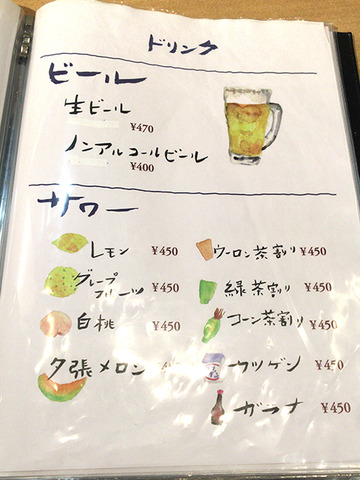 ドリンク
ビール
生ビール
¥470
ノンアルコールビール
¥400
サワー
レモン ¥450
グレープフルーツ ¥450
白桃 ¥450
夕張メロン
ウーロン茶割り ¥450
緑茶割り ¥450
コーン茶割り ¥450
カツゲン ¥450
ガラナ ¥450